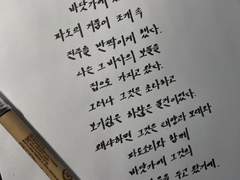 바닷가에
파도의 거품이 조개 속
진주를 반짝이게 했다.
나는 그 바다의 보물을
집으로 가지고 왔다.
그러나 그것은 초라하고
보기싫은 하찮은 물건이었다.
왜냐하면 그것은 태양과 모래와
파도소리와 함께
바닷가에 그것의
두고 왔기에.